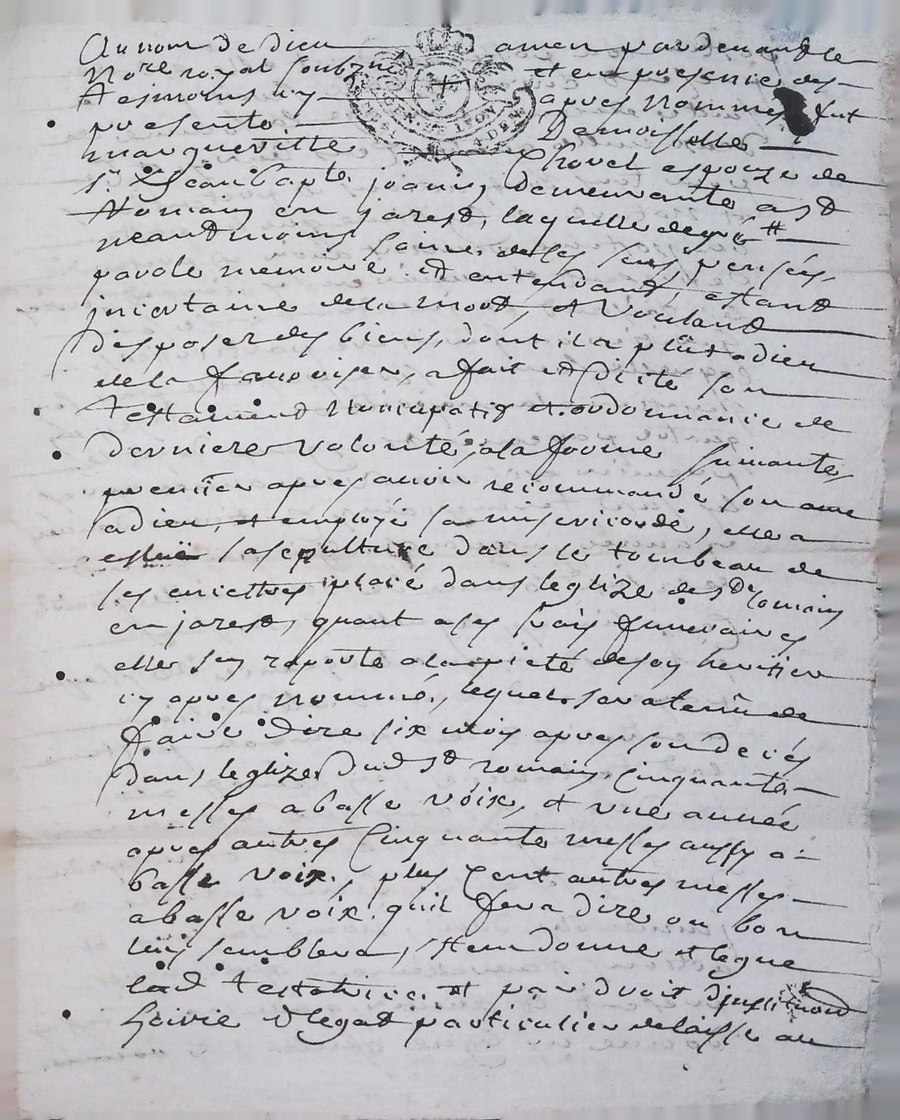 Au nom de dieu amen par devant le
No.re royal soubzné et en presence des
tesmoins cy apres nommes fut
presente Demoiselle
margueritte Thovel espouze de
Sr Jean bapte joanin demeurante a St
Romain en jarest, laquelle de gré
neantmoins saine de ses sens, pensées,
parole memoire et entendant, estant
incertaine de la mort, et voulant
disposer des biens, dont il a plût a dieu
de la favoriser, a fait et dicté son
testament Noncupatif et ordonnance de
derniere volonté, a la forme suivante,
premier apres avoir recommandé son ame
a dieu, et employé sa misericorde, elle a
esleu sa sepulture dans le tombeau de
ses encestres placé dans leglize de St Romain
en jarest, quant a ses frais funeraires
elle sen raporte a la pieté de son heritier
cy apres nommé, lequel sera tenu de
faire dire six mois apres son decés
dans leglize dud St romain cinquante
messes a basse voix, et une année
apres autres cinquante messes aussy a
basse voix, plus cent autres messes
a basse voix quil fera dire ou bon
luy semblera, Item donne et legue
lad testatrice et par droit dinstitution
hoirie et legat particulier delaisse au